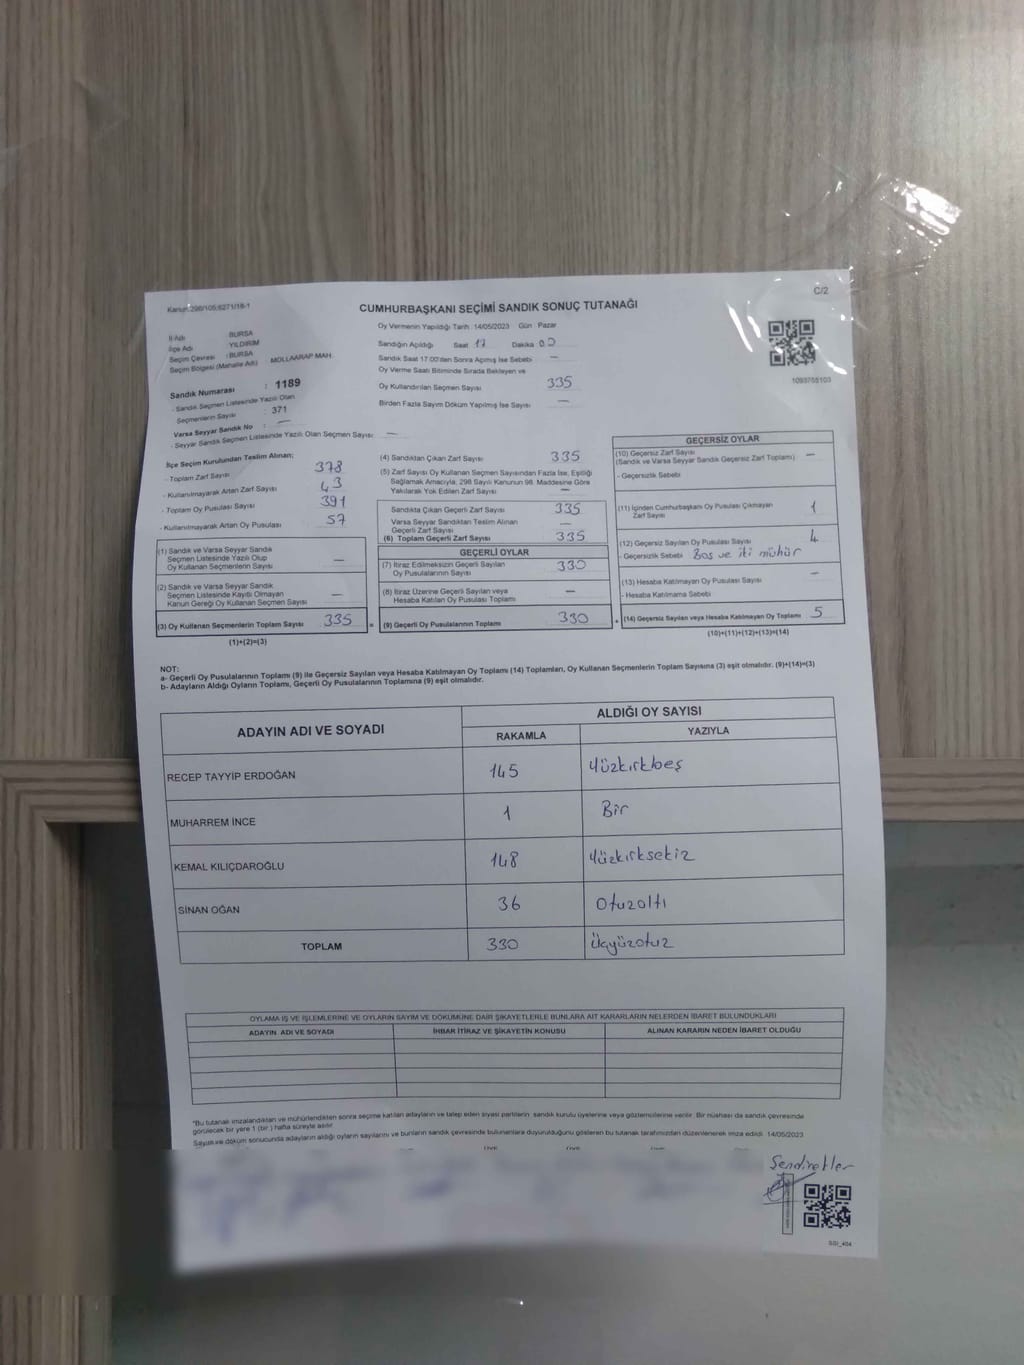 Kanun:298/105;6271/18-1
C/2
CUMHURBAŞKANI SEÇİMİ SANDIK SONUÇ TUTANAĞI
İl Adı : BURSA
İlçe Adı : YILDIRIM
Seçim Çevresi : BURSA
Seçim Bölgesi (Mahalle Adı) : MOLLAARAP MAH.
Sandık Numarası : 1189
- Sandık Seçmen Listesinde Yazılı Olan
Seçmenlerin Sayısı : 371
Varsa Seyyar Sandık No : —
- Seyyar Sandık Seçmen Listesinde Yazılı Olan Seçmen Sayısı: —
Oy Vermenin Yapıldığı Tarih :14/05/2023 Gün Pazar
Sandığın Açıldığı Saat 17 Dakika 00
Sandık Saat 17:00'den Sonra Açılmış İse Sebebi —
Oy Verme Saati Bitiminde Sırada Bekleyen ve
Oy Kullandırılan Seçmen Sayısı 335
Birden Fazla Sayım Döküm Yapılmış İse Sayısı —
1093755103
İlçe Seçim Kurulundan Teslim Alınan;
- Toplam Zarf Sayısı 378
- Kullanılmayarak Artan Zarf Sayısı 43
- Toplam Oy Pusulası Sayısı 391
- Kullanılmayarak Artan Oy Pusulası 57
(1) Sandık ve Varsa Seyyar Sandık
Seçmen Listesinde Yazılı Olup
Oy Kullanan Seçmenlerin Sayısı —
(2) Sandık ve Varsa Seyyar Sandık
Seçmen Listesinde Kayıtlı Olmayan
Kanun Gereği Oy Kullanan Seçmen Sayısı —
(3) Oy Kullanan Seçmenlerin Toplam Sayısı 335 =
(1)+(2)=(3)
(4) Sandıktan Çıkan Zarf Sayısı 335
(5) Zarf Sayısı Oy Kullanan Seçmen Sayısından Fazla İse, Eşitliği
Sağlamak Amacıyla; 298 Sayılı Kanunun 98. Maddesine Göre
Yakılarak Yok Edilen Zarf Sayısı —
Sandıkta Çıkan Geçerli Zarf Sayısı 335
Varsa Seyyar Sandıktan Teslim Alınan
Geçerli Zarf Sayısı —
(6) Toplam Geçerli Zarf Sayısı 335
GEÇERLİ OYLAR
(7) İtiraz Edilmeksizin Geçerli Sayılan
Oy Pusulalarının Sayısı 330
(8) İtiraz Üzerine Geçerli Sayılan veya
Hesaba Katılan Oy Pusulası Toplamı —
(9) Geçerli Oy Pusulalarının Toplamı 330 +
GEÇERSİZ OYLAR
(10) Geçersiz Zarf Sayısı
(Sandık ve Varsa Seyyar Sandık Geçersiz Zarf Toplamı) —
- Geçersizlik Sebebi
(11) İçinden Cumhurbaşkanı Oy Pusulası Çıkmayan
Zarf Sayısı 1
(12) Geçersiz Sayılan Oy Pusulası Sayısı 4
- Geçersizlik Sebebi Boş ve iki mühür
(13) Hesaba Katılmayan Oy Pusulası Sayısı —
- Hesaba Katılmama Sebebi
(14) Geçersiz Sayılan veya Hesaba Katılmayan Oy Toplamı 5
(10)+(11)+(12)+(13)=(14)
NOT:
a- Geçerli Oy Pusulalarının Toplamı (9) ile Geçersiz Sayılan veya Hesaba Katılmayan Oy Toplamı (14) Toplamları, Oy Kullanan Seçmenlerin Toplam Sayısına (3) eşit olmalıdır. (9)+(14)=(3)
b- Adayların Aldığı Oyların Toplamı, Geçerli Oy Pusulalarının Toplamına (9) eşit olmalıdır.
ADAYIN ADI VE SOYADI
ALDIĞI OY SAYISI
RAKAMLA YAZIYLA
RECEP TAYYİP ERDOĞAN 145 Yüzkırkbeş
MUHARREM İNCE 1 Bir
KEMAL KILIÇDAROĞLU 148 Yüzkırksekiz
SİNAN OĞAN 36 Otuzaltı
TOPLAM 330 Üçyüzotuz
OYLAMA İŞ VE İŞLEMLERİNE VE OYLARIN SAYIM VE DÖKÜMÜNE DAİR ŞİKAYETLERLE BUNLARA AİT KARARLARIN NELERDEN İBARET BULUNDUKLARI
ADAYIN ADI VE SOYADI İHBAR İTİRAZ VE ŞİKAYETİN KONUSU ALINAN KARARIN NEDEN İBARET OLDUĞU
"Bu tutanak imzalandıktan ve mühürlendikten sonra seçime katılan adayların ve talep eden siyasi partilerin sandık kurulu üyelerine veya gözlemcilerine verilir. Bir nüshası da sandık çevresinde
görülecek bir yere 1 (bir ) hafta süreyle asılır.
Sayım ve döküm sonucunda adayların aldığı oyların sayılarını ve bunların sandık çevresinde bulunanlara duyurulduğunu gösteren bu tutanak tarafımızdan düzenlenerek imza edildi. 14/05/2023
SSI_404